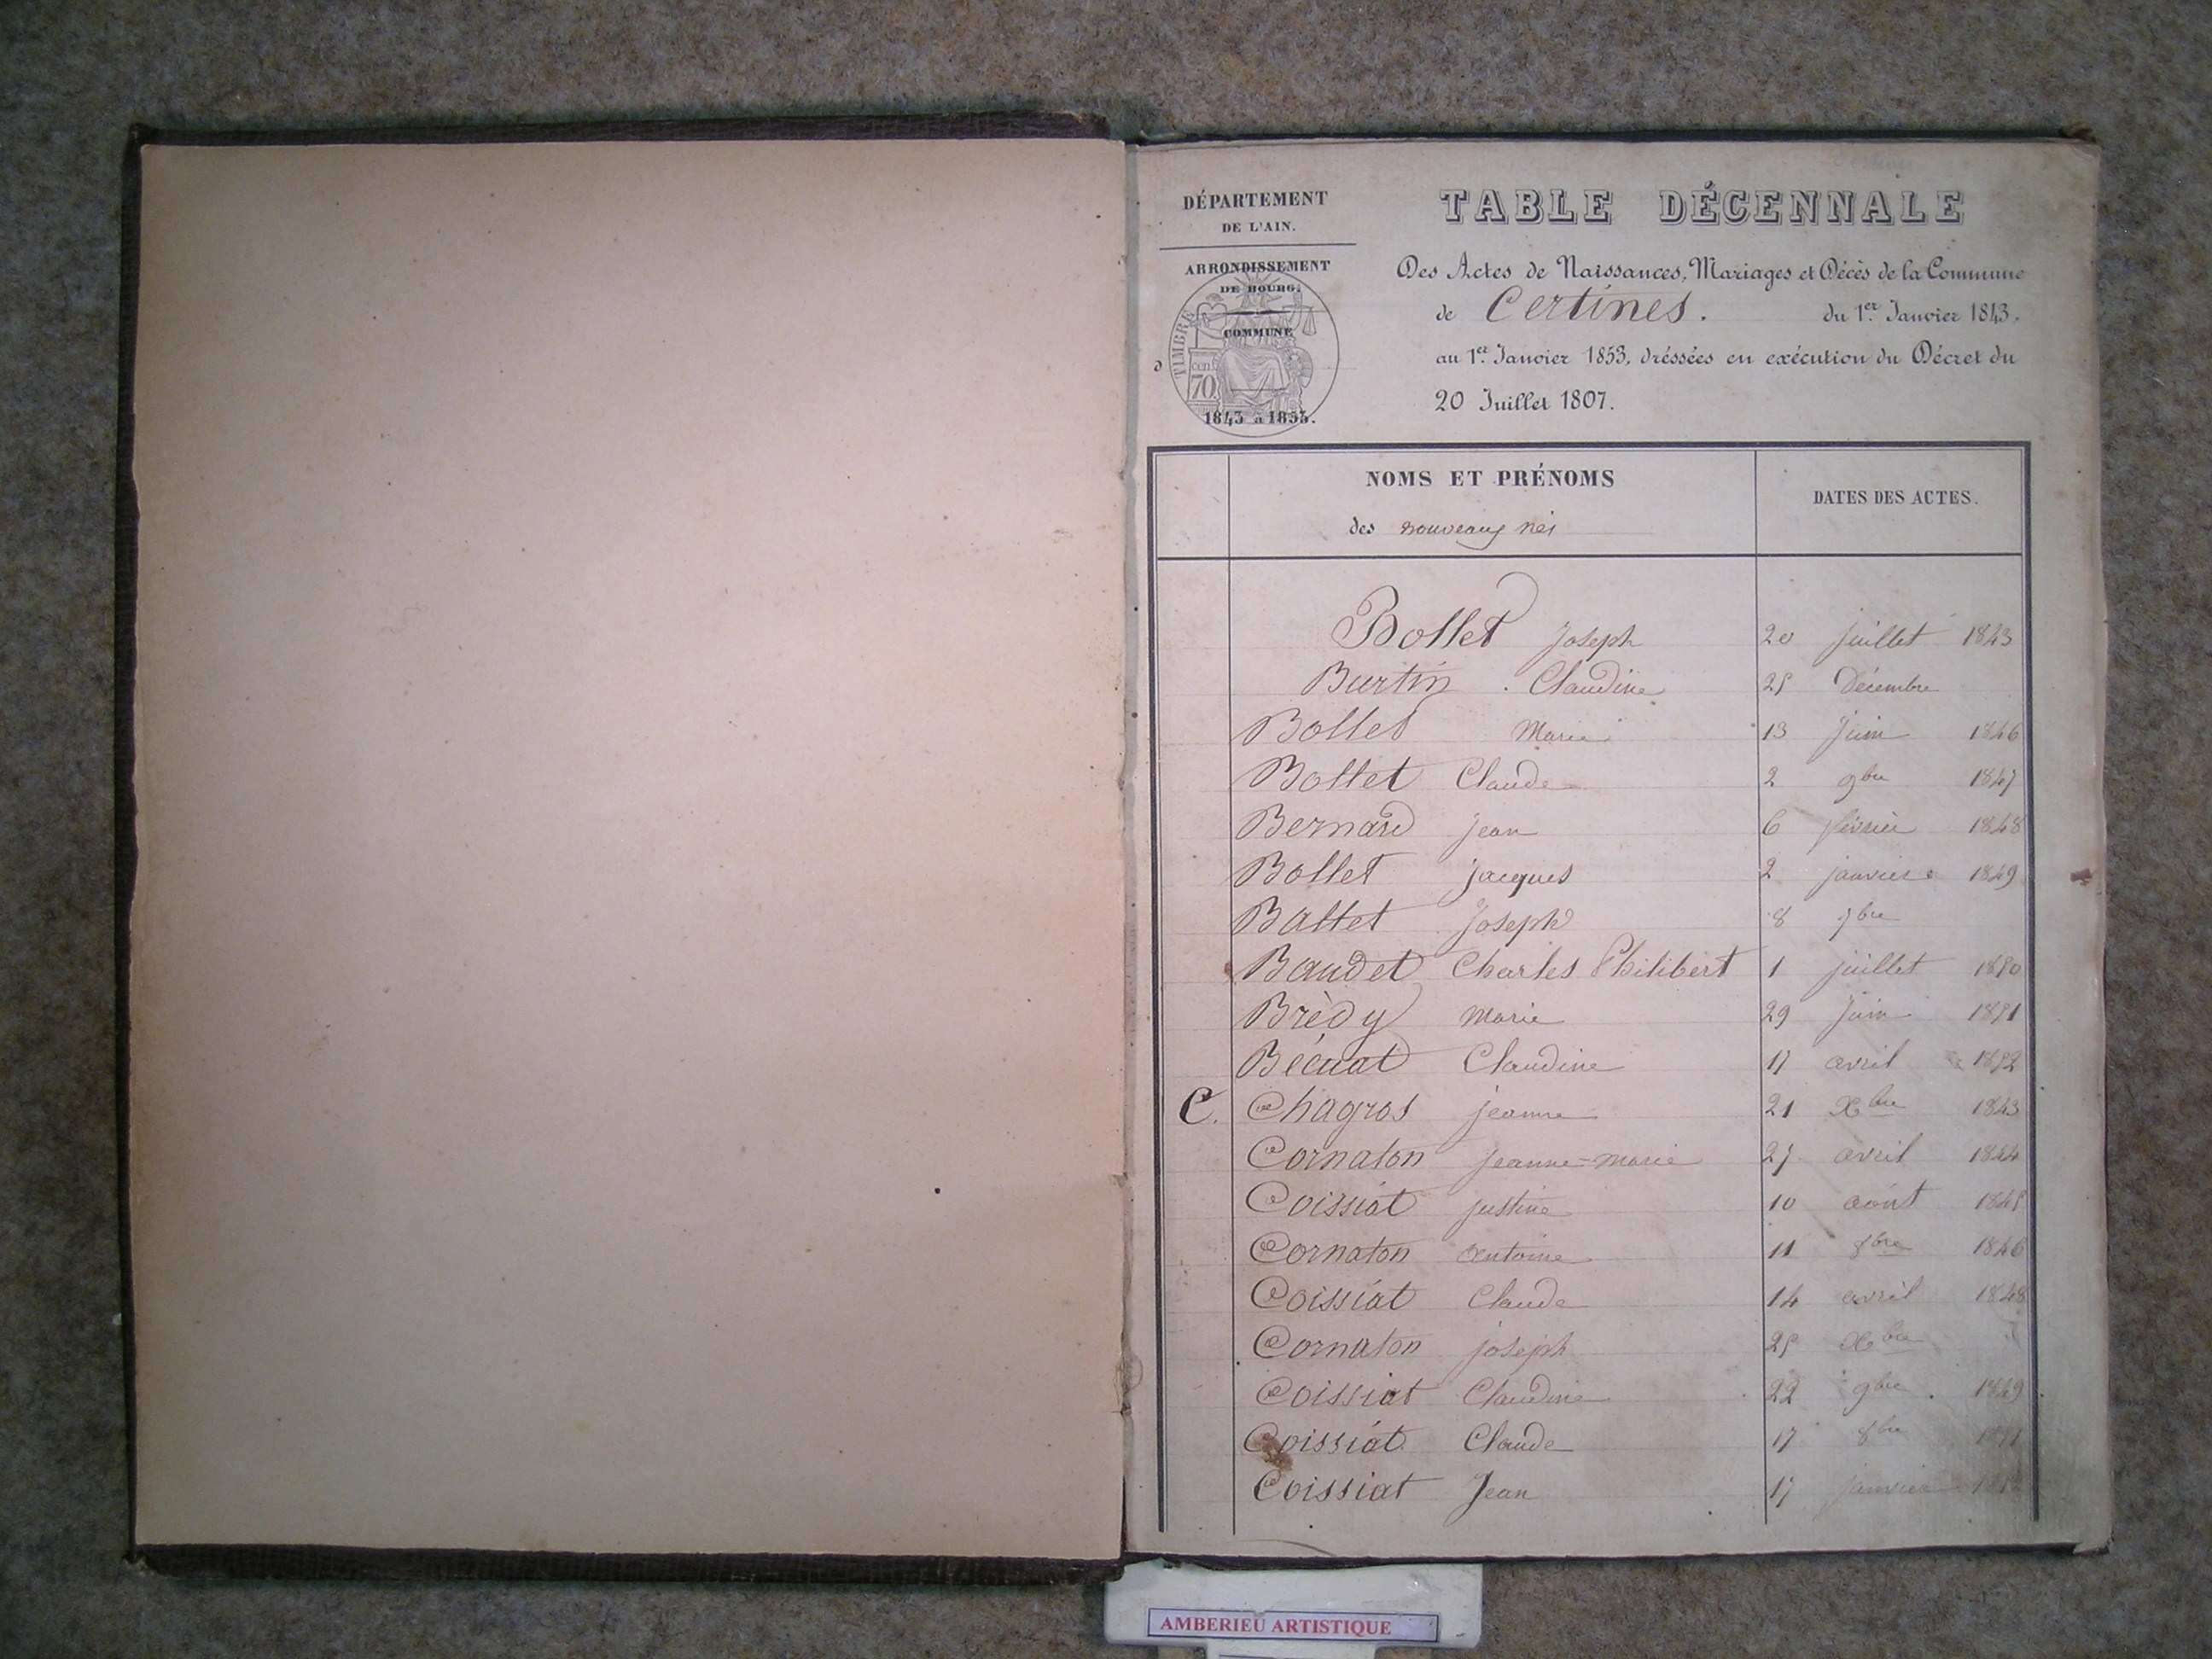 DÉPARTEMENT
DE L'AIN.
ARRONDISSEMENT
DE BOURG.
COMMUNE
TIMBRE
cen.
70
1843 à 1853.
TABLE DÉCENNALE
Des Actes de Naissances, Mariages et Décès de la Commune
de Certines. du 1er Janvier 1843.
au 1er Janvier 1853, dréssées en exécution du Décret du
20 Juillet 1807.
NOMS ET PRÉNOMS
des nouveaux nés
DATES DES ACTES.
Bollet Joseph 20 juillet 1843
Burtin Claudine 25 Décembre
Bollet Marie 13 Juin 1846
Bollet Claude 2 9bre 1847
Bernard Jean 6 février 1848
Bollet Jacques 2 janvier 1849
Ballet Joseph 8 bre
Baudet Charles Philibert 1 juillet 1850
Brèdy Marie 29 Juin 1851
Bécuat Claudine 17 avril 1852
C. Chagros Jeanne 21 Xbre 1843
Cornaton Jeanne-Marie 27 avril 1844
Coissiat Justine 10 août 1845
Cornaton Antoine 11 8bre 1846
Coissiat Claude 14 avril 1848
Cornaton Joseph 25 Xbre
Coissiat Claudine 22 9bre 1849
Coissiat Claude 17 8bre 1851
Coissiat Jean 17 Janvier 1852
AMBERIEU ARTISTIQUE